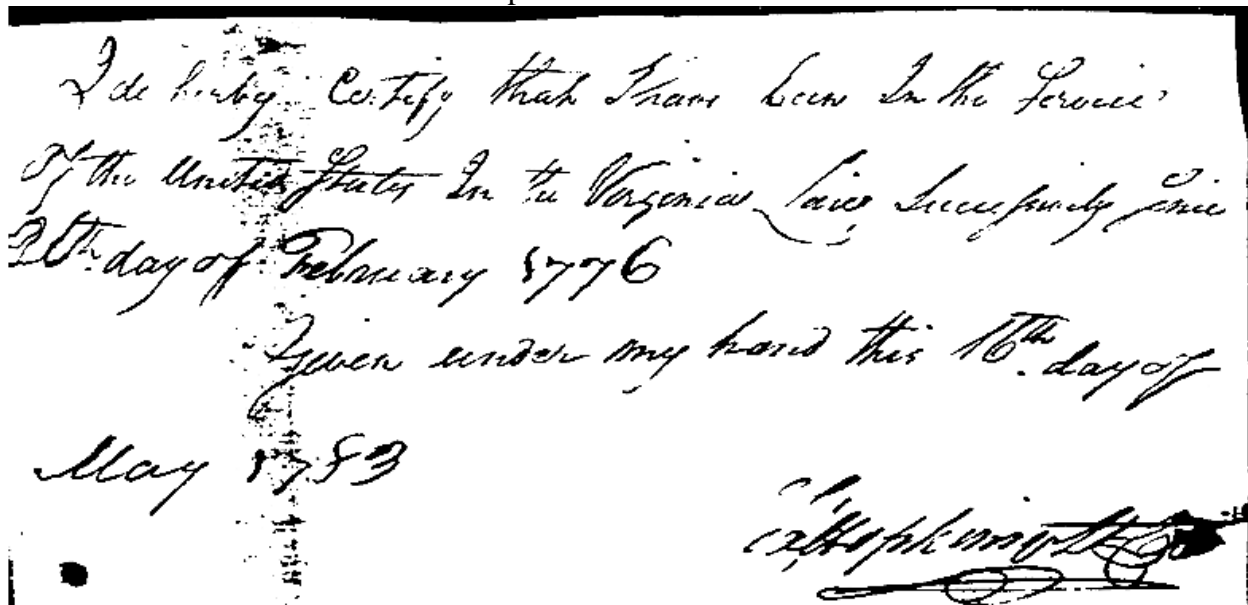 I do hereby Certify that I have been In the Service
Of the United States In the Virginia Line Successively since
day of February 1776
Given under my hand this 16th day of
May 1783
Hopkins Lt Co